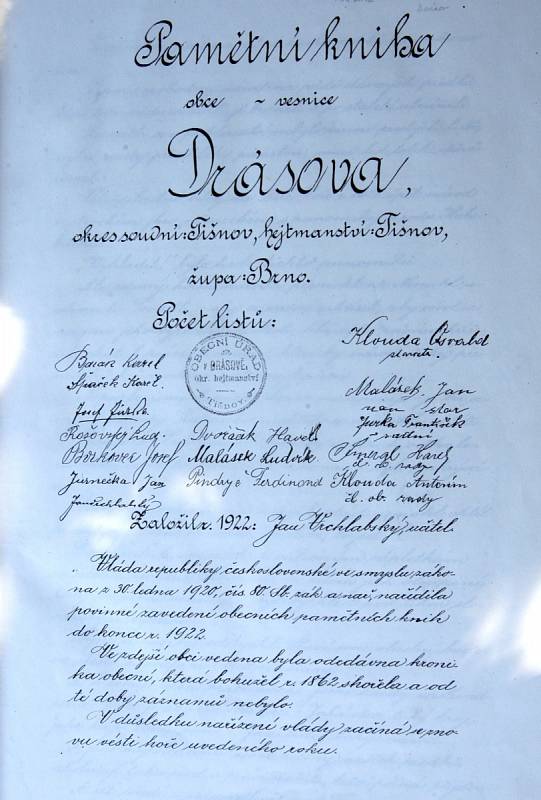 Pamětní kniha
obce ~ vesnice
Drásova,
okres soudní: Tišnov, hejtmanství: Tišnov,
župa: Brno.
Počet listů:
Klouda Osvald
starosta.
OBECNÍ ÚŘAD
v DRÁSOVĚ,
okr. hejtmanství
TIŠNOV.
Karel
Špaček Karel
Malásek Jan
nám. star
Josef
Jurka František
radní
Lud. Dvořáček Havel
Josef Malásek Ludvík Karel
čl. ob. rady
Jurnečka Jan Ferdinand Klouda Antonín
čl. ob. rady
Jan Vrchlabský
Založil r. 1922: Jan Vrchlabský, učitel.
Vláda republiky československé ve smyslu záko-
na z 30. ledna 1920, čís. 80. Sb. zák. a nař. nařídila
povinné zavedení obecních pamětních knih
do konce r. 1922.
Ve zdejší obci vedena byla odedávna kroni-
ka obecní, která bohužel r. 1862 shořela a od
té doby záznamů nebylo.
V důsledku nařízení vlády začíná se zno-
vu vésti hoře uvedeného roku.